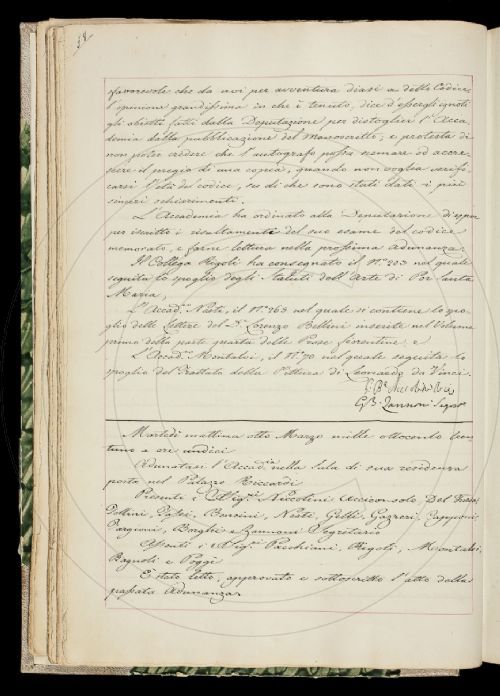 sfavorevole che da noi per avventura diasi a detto Codice
l'opinione grandissima in che è tenuto, dice d'essergli ignoti
gli obietti fatti dalla Deputazione per distogliere l'Acca-
demia dalla pubblicazione del Manoscritto; e protesta di
non poter credere che l'autografo possa scemare od accre-
scere il pregio di una copia, quando non voglia verifi-
carsi l'età del codice, su di che sono stati dati i più
sinceri schiarimenti.
L'Accademia ha ordinato alla Deputazione di esporre
per iscritto i resultamenti del suo esame del codice
memorato, e farne lettura nella prossima Adunanza.
Il Collega Rigoli ha consegnato il N.º 203 nel quale
seguita lo spoglio degli Statuti dell'Arte di Por Santa
Maria,
L'Accad.º Nesti, il N.º 263 nel quale si contiene lo spo-
glio delle Lettere del D. Lorenzo Bellini inserite nel Volume
primo della parte quarta delle Prose fiorentine, e
L'Accad.º Montalvi, il N.º 70 nel quale seguita lo
spoglio del Trattato della Pittura di Leonardo da Vinci.
G. B. Niccolini
G. B. Zannoni Segret.
Martedì mattina otto Marzo mille ottocento tren-
tuno a ore undici
Adunatasi l'Accad.ia nella Sala di sua residenza
posta nel Palazzo Riccardi
Presenti i Sig.ri Niccolini Arciconsolo, Del Furia,
Follini, Borsini, Nesti, Gelli, Gazzeri, Capponi,
Targioni, Borghi e Zannoni Segretario
Assenti i Sig.ri Pacchiani, Rigoli, Montalvi,
Bagnoli e Poggi
È stato letto, approvato e sottoscritto l'atto della
passata Adunanza.